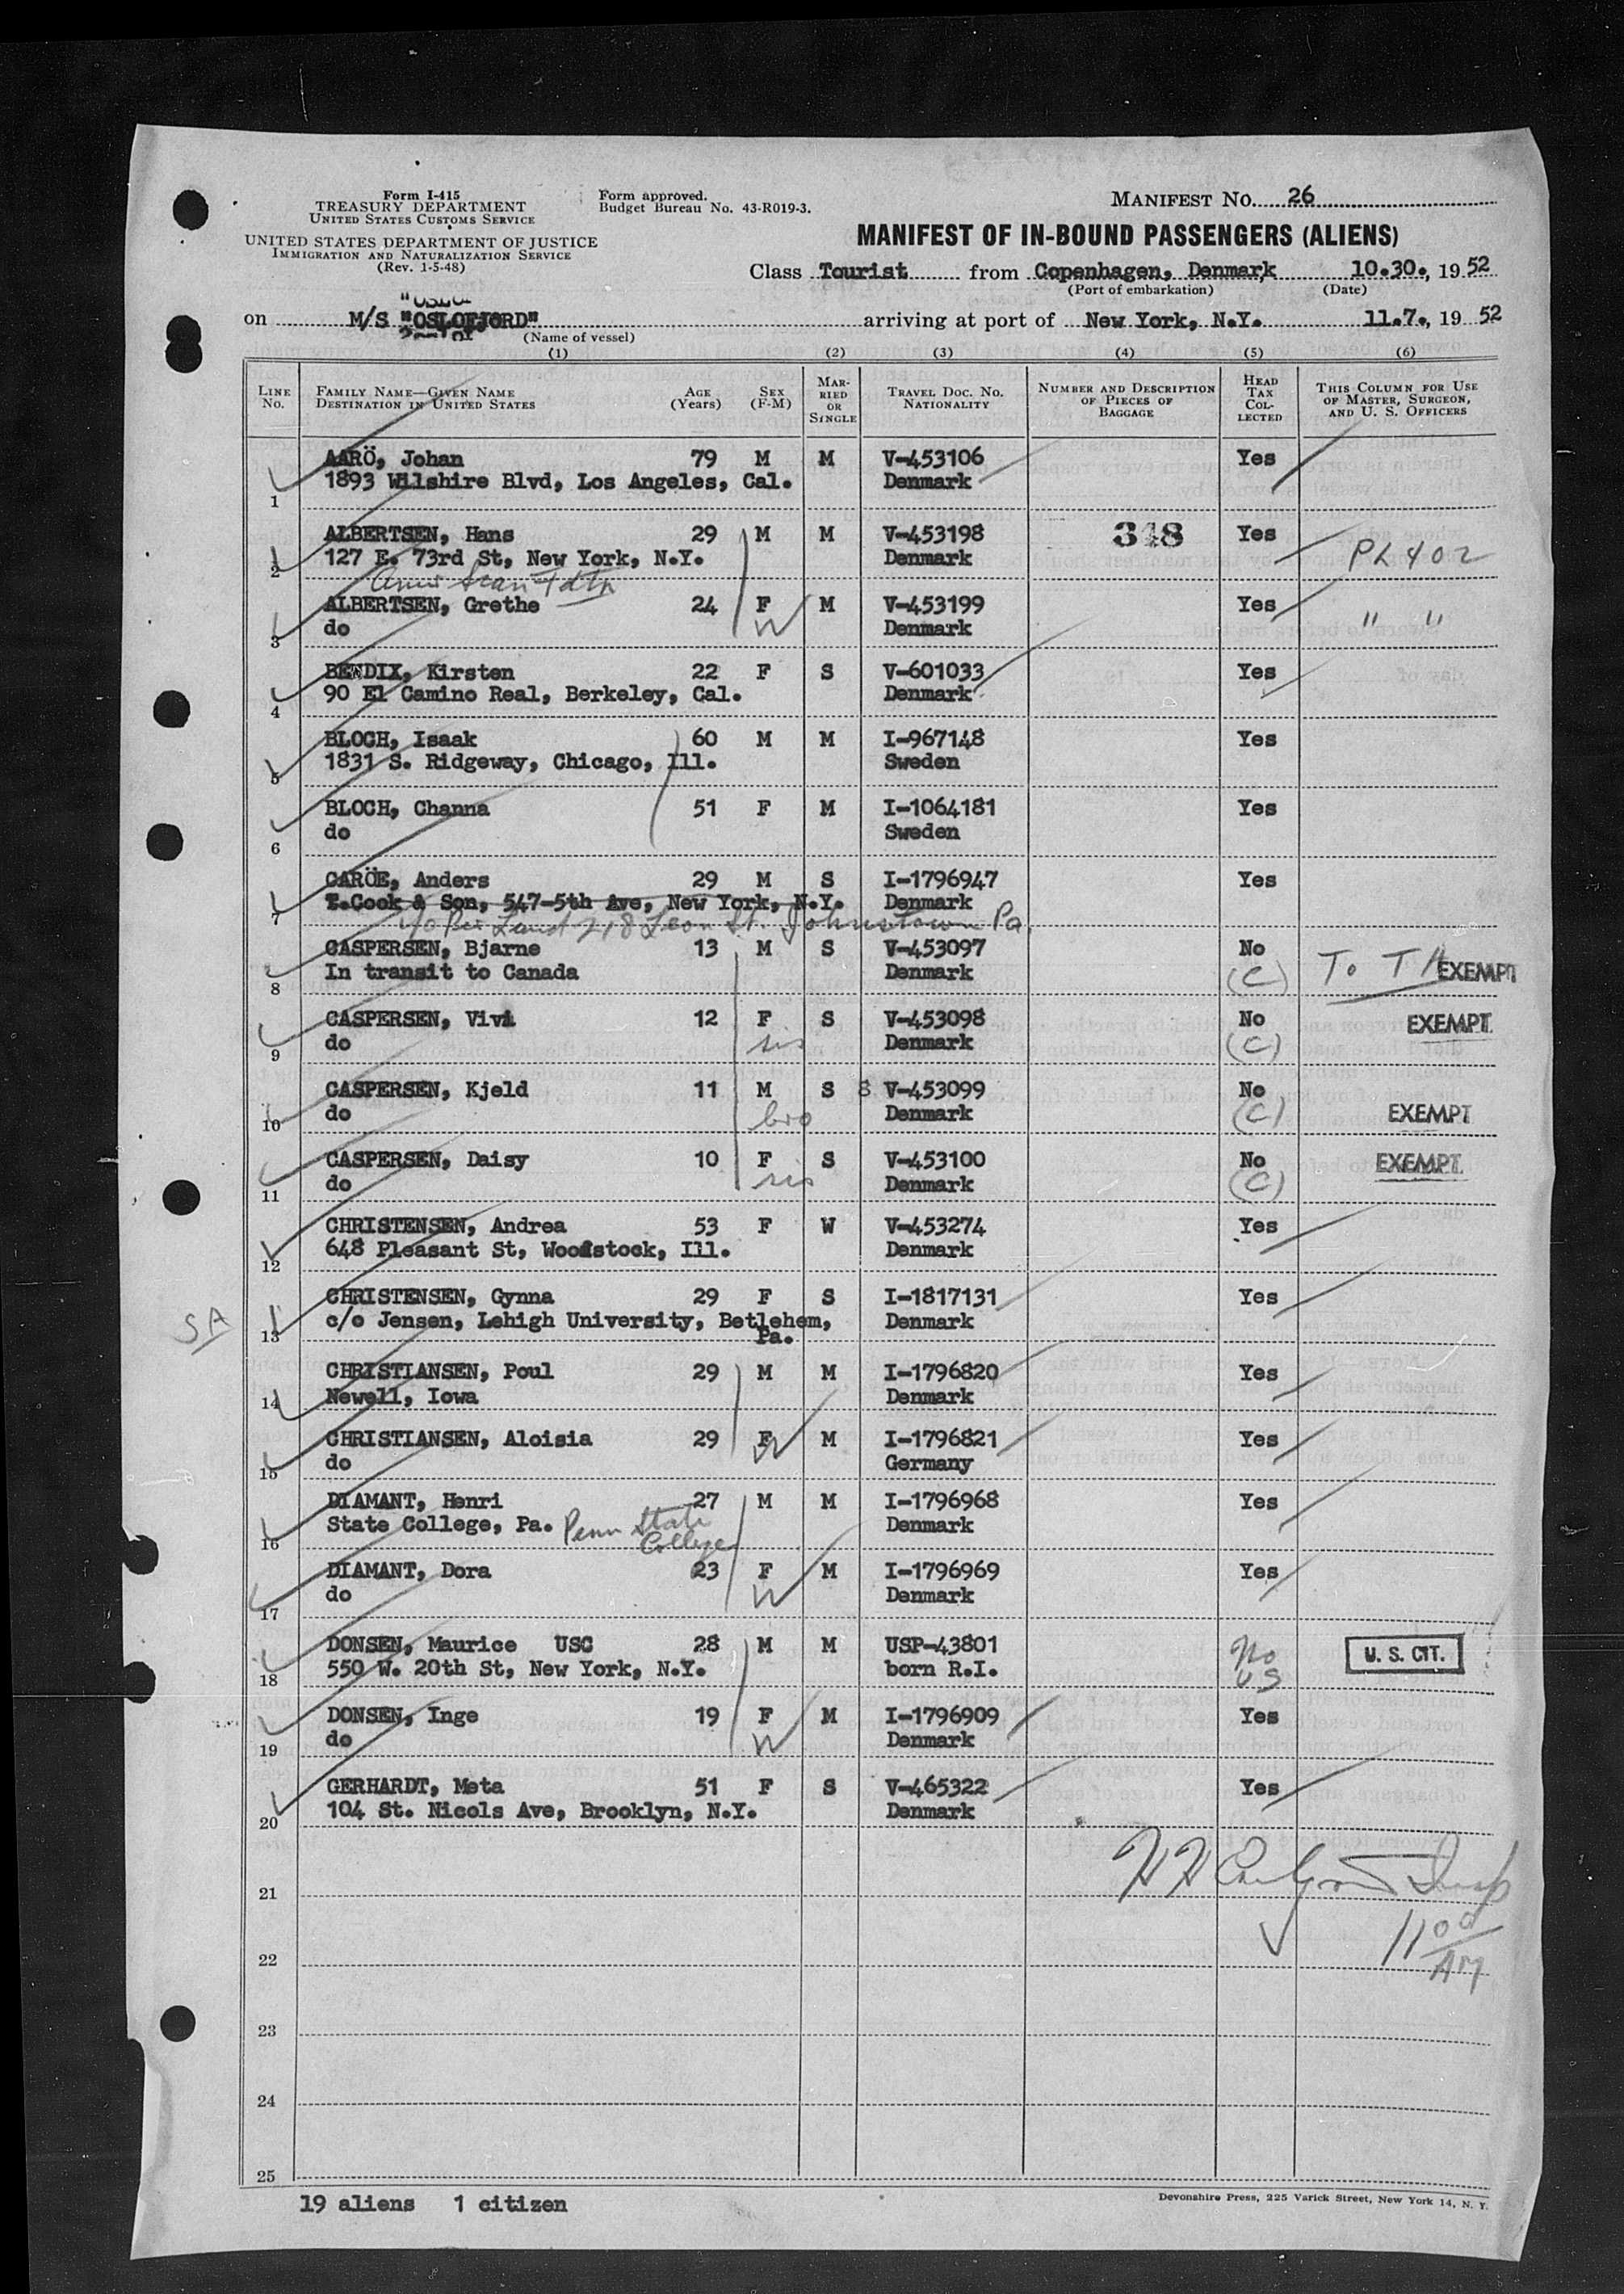 Form I-415
TREASURY DEPARTMENT
UNITED STATES CUSTOMS SERVICE
UNITED STATES DEPARTMENT OF JUSTICE
IMMIGRATION AND NATURALIZATION SERVICE
(Rev. 1-5-48)
Form approved.
Budget Bureau No. 43-R019-3.
MANIFEST NO. 26
MANIFEST OF IN-BOUND PASSENGERS (ALIENS)
Class Tourist from Copenhagen, Denmark 10.30., 1952
(Port of embarkation) (Date)
on M/S "OSLOFJORD" arriving at port of New York, N.Y. 11.7., 1952
(Name of vessel)
(1) (2) (3) (4) (5) (6)
LINE NO. FAMILY NAME—GIVEN NAME DESTINATION IN UNITED STATES AGE (Years) SEX (F-M) MARRIED OR SINGLE TRAVEL DOC. NO. NATIONALITY NUMBER AND DESCRIPTION OF PIECES OF BAGGAGE HEAD TAX COLLECTED THIS COLUMN FOR USE OF MASTER, SURGEON, AND U. S. OFFICERS
AARÖ, Johan 79 M M V-453106 Yes
1 1893 Wilshire Blvd, Los Angeles, Cal. Denmark
ALBERTSEN, Hans 29 M M V-453198 348 Yes PL 402
2 127 E. 73rd St, New York, N.Y. Denmark
Amer Scan Fdtn
ALBERTSEN, Grethe 24 F M V-453199 Yes " "
3 do W Denmark
BENDIX, Kirsten 22 F S V-601033 Yes
4 90 El Camino Real, Berkeley, Cal. Denmark
BLOCH, Isaak 60 M M I-967148 Yes
5 1831 S. Ridgeway, Chicago, Ill. Sweden
BLOCH, Channa 51 F M I-1064181 Yes
6 do Sweden
CARÖE, Anders 29 M S I-1796947 Yes
7 T.Cook & Son, 547-5th Ave, New York, N.Y. Denmark
218 Leon St. Johnstown Pa.
CASPERSEN, Bjarne 13 M S V-453097 No To TA EXEMPT
8 In transit to Canada Denmark (C)
CASPERSEN, Vivi 12 F S V-453098 No EXEMPT
9 do sis Denmark (C)
CASPERSEN, Kjeld 11 M S 8 V-453099 No EXEMPT
10 do bro Denmark (C)
CASPERSEN, Daisy 10 F S V-453100 No EXEMPT
11 do sis Denmark (C)
CHRISTENSEN, Andrea 53 F W V-453274 Yes
12 648 Pleasant St, Woodstock, Ill. Denmark
CHRISTENSEN, Gynna 29 F S I-1817131 Yes
SA 13 c/o Jensen, Lehigh University, Betlehem, Pa. Denmark
CHRISTIANSEN, Poul 29 M M I-1796820 Yes
14 Newell, Iowa Denmark
CHRISTIANSEN, Aloisia 29 F M I-1796821 Yes
15 do W Germany
DIAMANT, Henri 27 M M I-1796968 Yes
16 State College, Pa. Penn State College Denmark
DIAMANT, Dora 23 F M I-1796969 Yes
17 do W Denmark
DONSEN, Maurice USC 28 M M USP-43801 No US U. S. CIT.
18 550 W. 20th St, New York, N.Y. born R.I.
DONSEN, Inge 19 F M I-1796909 Yes
19 do W Denmark
GERHARDT, Meta 51 F S V-465322 Yes
20 104 St. Nicols Ave, Brooklyn, N.Y. Denmark
21
22 11 00 AM
23
24
25
19 aliens 1 citizen
Devonshire Press, 225 Varick Street, New York 14, N. Y.